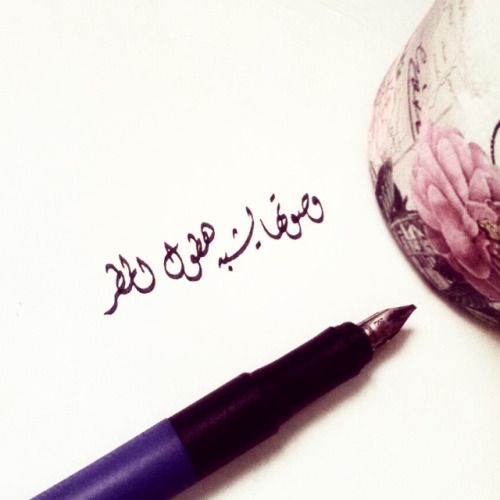 وصوتها يشبه هطول المطر